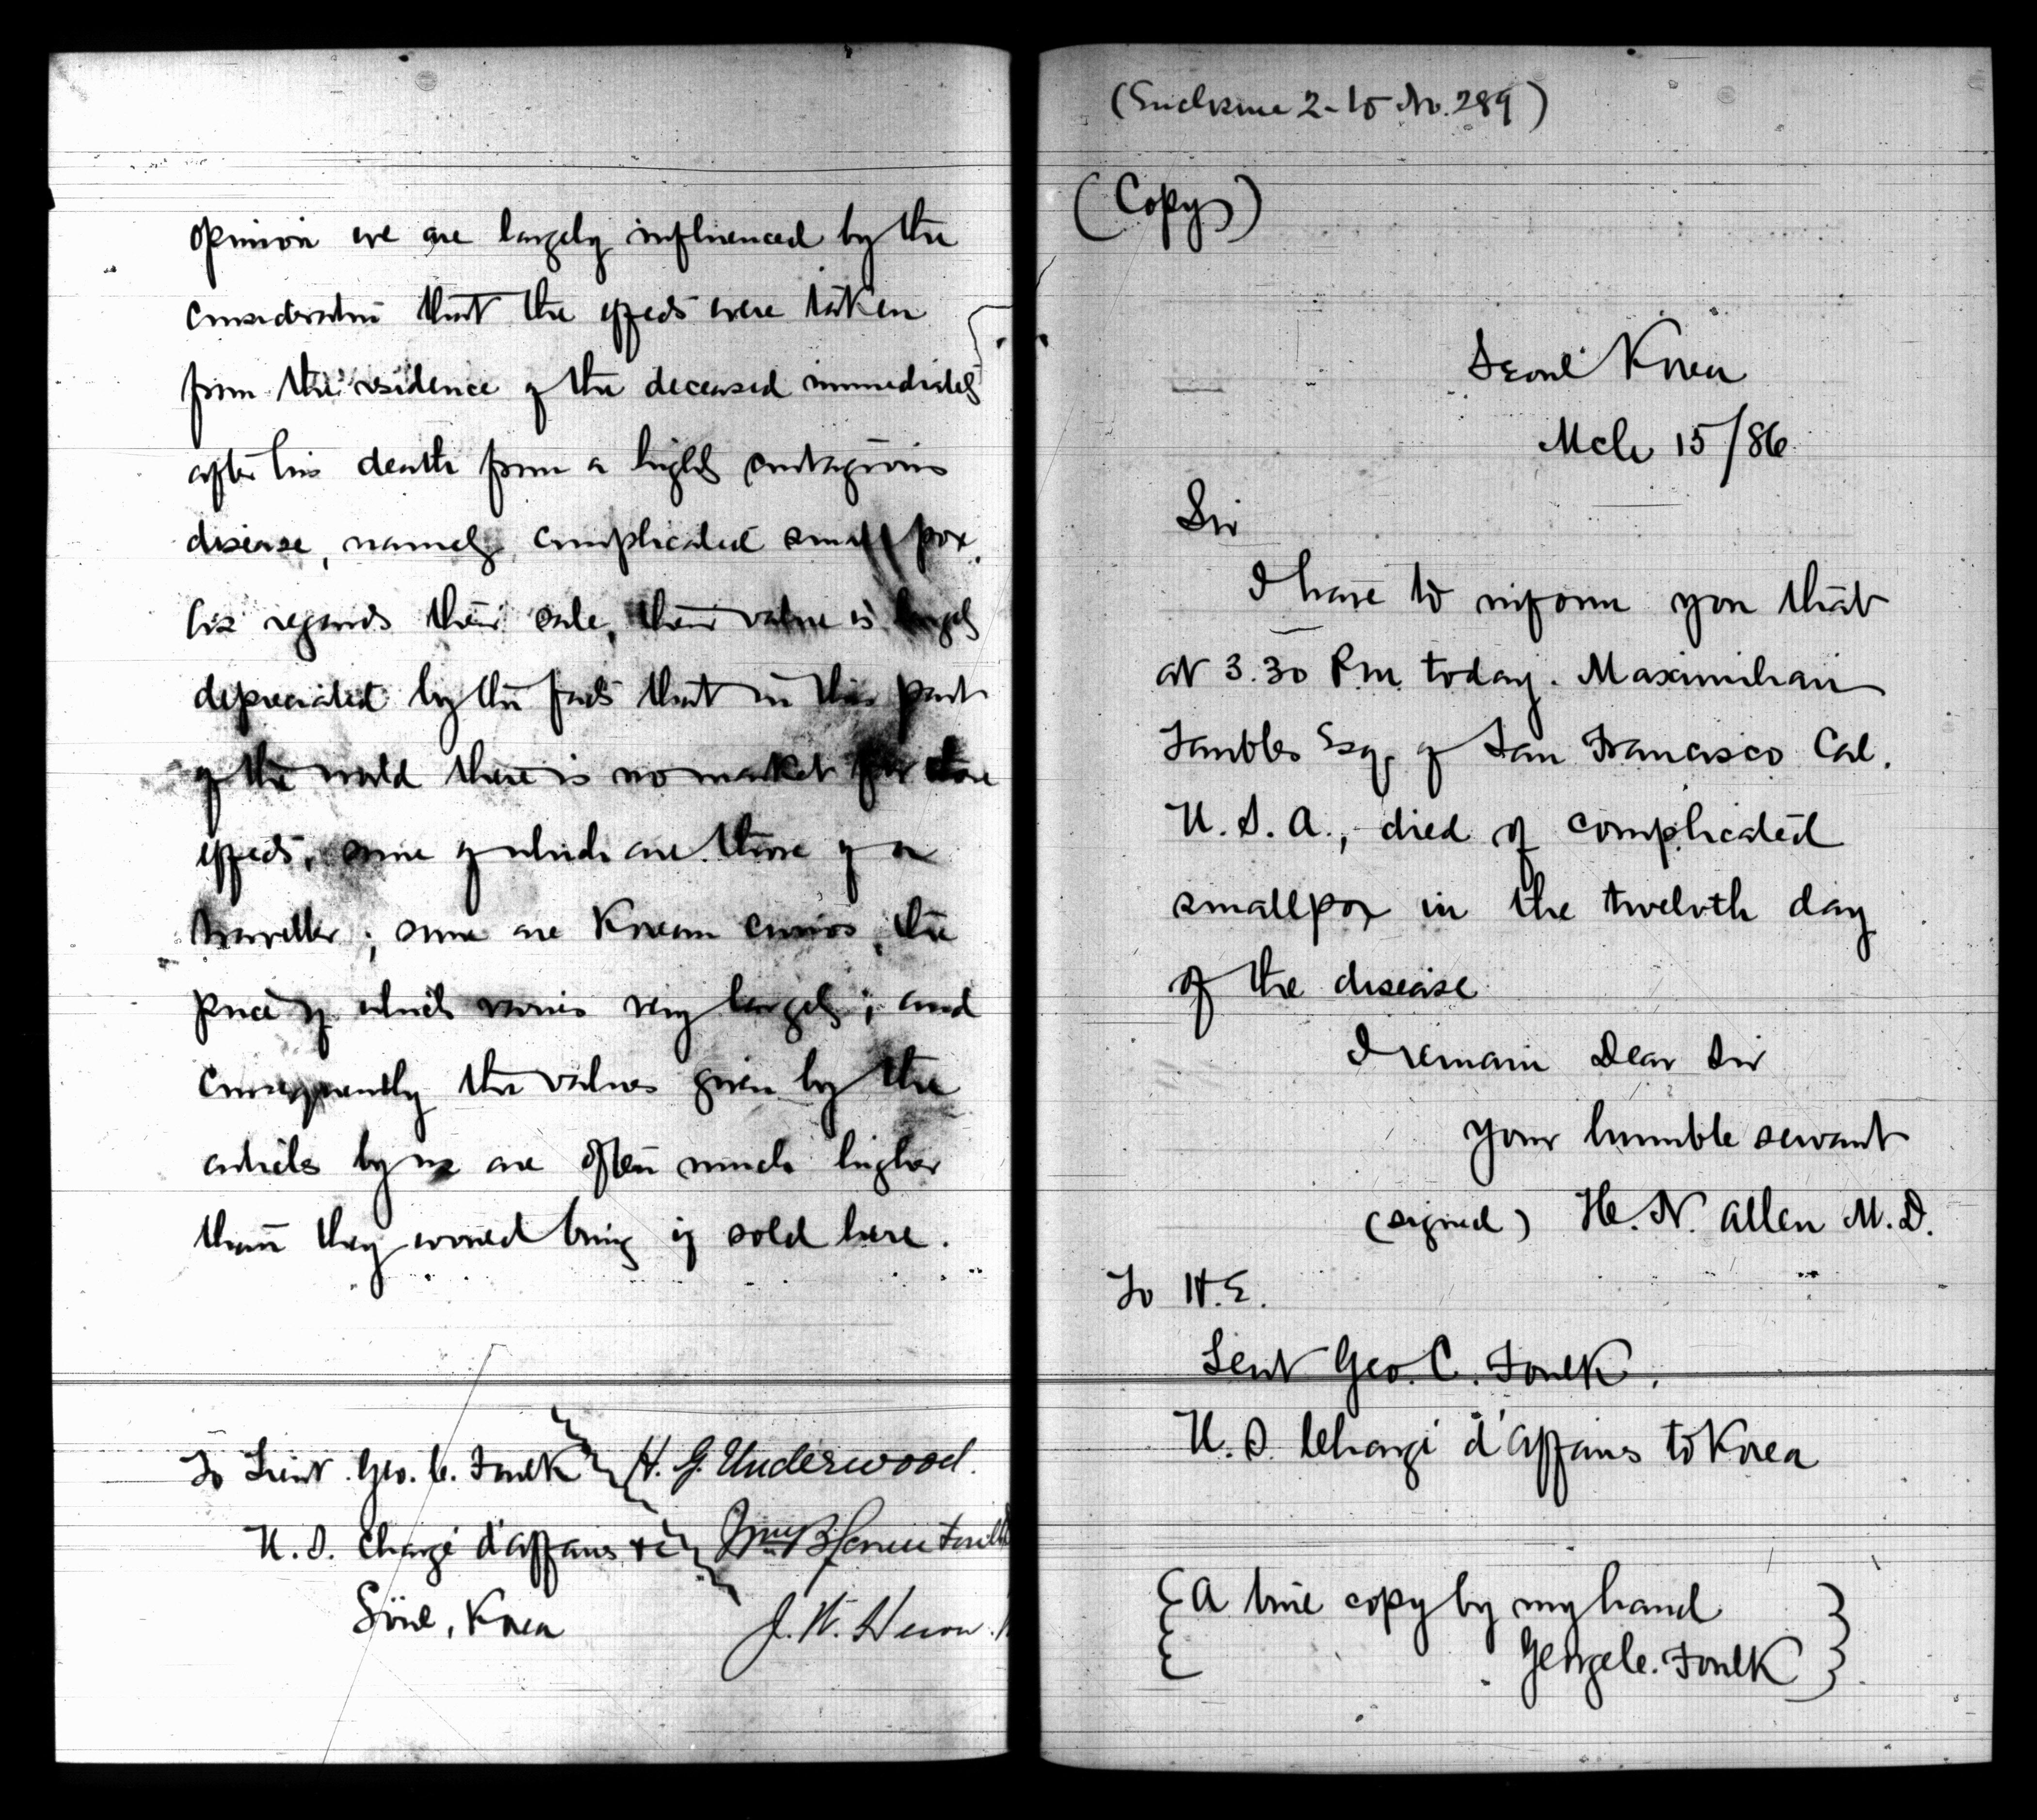 opinion we are largely influenced by the
consideration that the effects were taken
from the residence of the deceased immediately
after his death from a highly contagious
disease, namely complicated small pox.
As regards their sale, their value is largely
depreciated by the fact that in this part
of the world there is no market for these
effects, some of which are those of a
traveller; some are Korean curios, the
price of which varies very largely; and
consequently the values given by the
articles by us are often much higher
than they would bring if sold here.
To Lieut. Geo. C. Foulk
H. G. Underwood.
U. S. Chargé d'affaires
Wm B.
Söul, Korea
J. W. Heron.
(Enclosure 2- to No. 289)
(Copy)
Seoul Korea
Mch 15/86
Sir
I have to inform you that
at 3.30 P.m. today. Maximilian
Taubles Esq. of San Francisco Cal.
U. S. A., died of complicated
smallpox in the twelvth day
of the disease
I remain Dear Sir
your humble servant
(signed) H. N. Allen M. D.
To H. E.
Lieut Geo. C. Foulk.
U. S. Chargé d'Affairs to Korea
A true copy by my hand
George C. Foulk